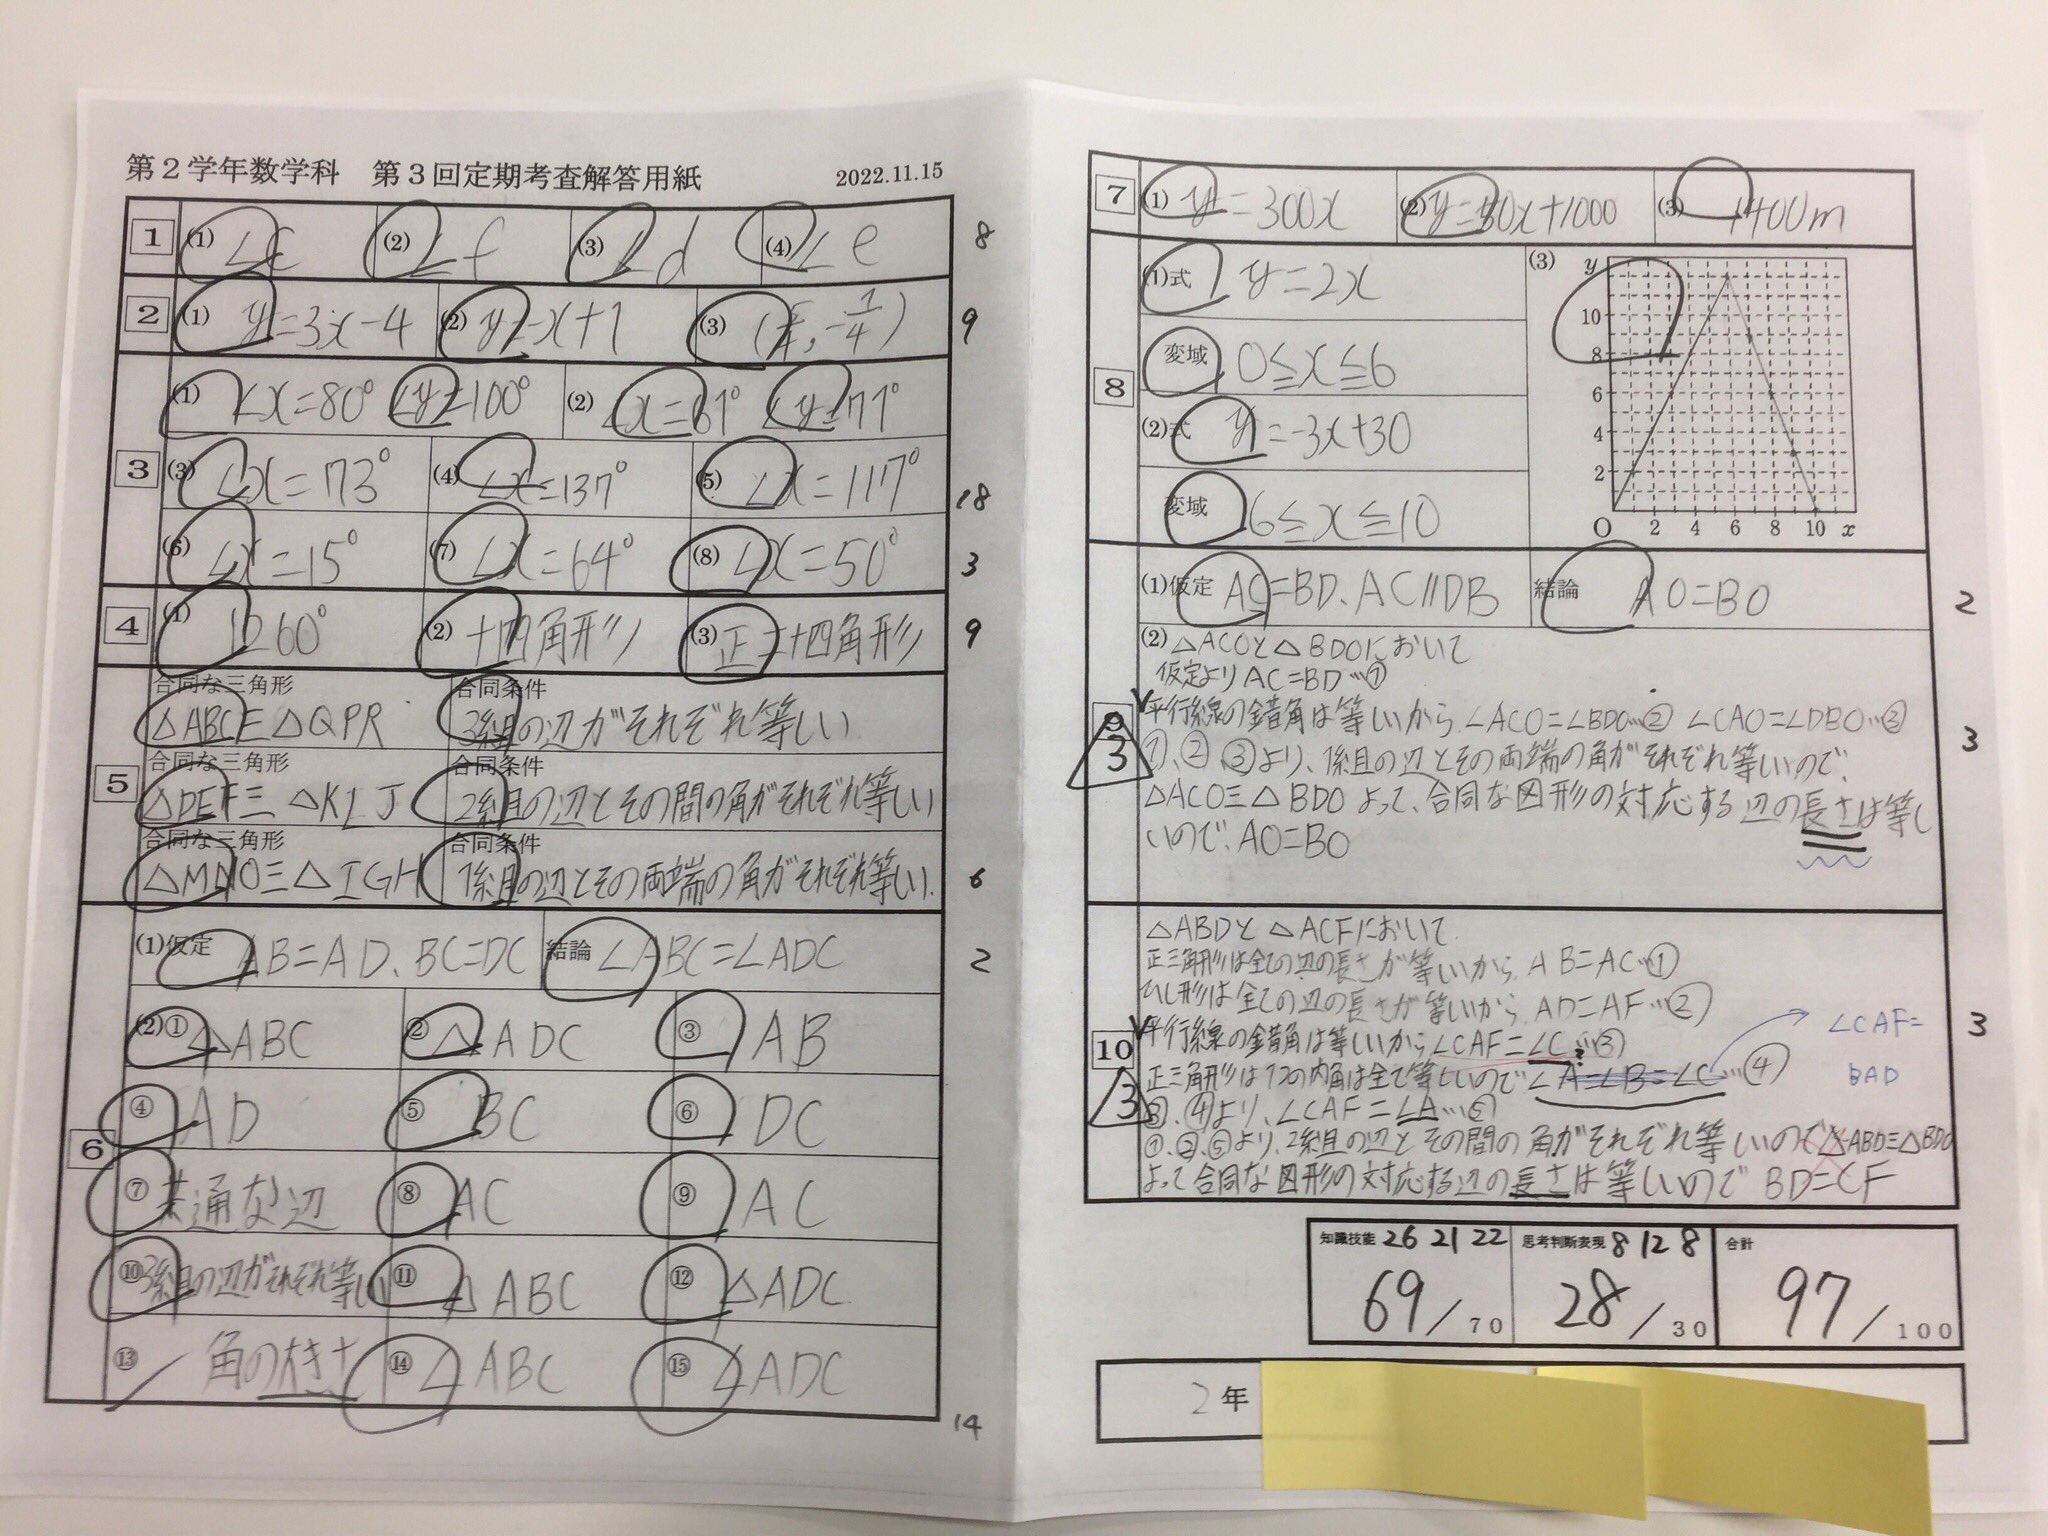 第2学年数学科 第3回定期考査解答用紙 2022.11.15
1 (1) ∠c (2) ∠f (3) ∠d (4) ∠e 8
2 (1) y=3x-4 (2) y=-x+1 (3) 9
(1) ∠x=80° ∠y=100° (2) ∠x=61° ∠y=71°
3 (3) ∠x=73° (4) ∠x=137° (5) ∠x=117° 18
(6) ∠x=15° (7) ∠x=64° (8) ∠x=50° 3
4 (1) 1260° (2) 十四角形 (3) 正二十四角形 9
合同な三角形 合同条件
△ABC≡△QPR 3組の辺がそれぞれ等しい
合同な三角形 合同条件
5 △DEF≡△KLJ 2組の辺とその間の角がそれぞれ等しい
合同な三角形 合同条件
△MNO≡△IGH 1組の辺とその両端の角がそれぞれ等しい. 6
(1)仮定 AB=AD、BC=DC 結論 ∠ABC=∠ADC 2
(2)① △ABC ② △ADC ③ AB
④ AD ⑤ BC ⑥ DC
6
⑦ 共通な辺 ⑧ AC ⑨ AC
⑩ 3組の辺がそれぞれ等しい ⑪ △ABC ⑫ △ADC
⑬ 角の大きさ ⑭ ∠ABC ⑮ ∠ADC
14
7 (1) y=300x (2) y=80x+1000 (3) 1400m
8
(1)式 y=2x
変域 0≦x≦6
(2)式 y=-3x+30
変域 6≦x≦10
(3) y
10
8
6
4
2
O 2 4 6 8 10 x
(1)仮定 AC=BD、AC//DB 結論 AO=BO 2
(2) △ACOと△BDOにおいて
仮定より AC=BD…①
9 平行線の錯角は等しいから、∠ACO=∠BDO…② ∠CAO=∠DBO…③
3 ①、②、③より、1組の辺とその両端の角がそれぞれ等しいので、 3
△ACO≡△BDO よって、合同な図形の対応する辺の長さは等し
いので、AO=BO
△ABDと△ACFにおいて
正三角形は全ての辺の長さが等しいから、AB=AC…①
ひし形は全ての辺の長さが等しいから、AD=AF…②
10 平行線の錯角は等しいから∠CAF=∠C…③ ∠CAF= 3
正三角形は1つの内角は全て等しいので∠A=∠B=∠C…④ BAD
3 ③、④より、∠CAF=∠A…⑤
①、②、⑤より、2組の辺とその間の角がそれぞれ等しいので△ABD≡△BDO
よって合同な図形の対応する辺の長さは等しいので BD=CF
知識技能 26 21 22 思考判断表現 8 12 8 合計
69/70 28/30 97/100
2年